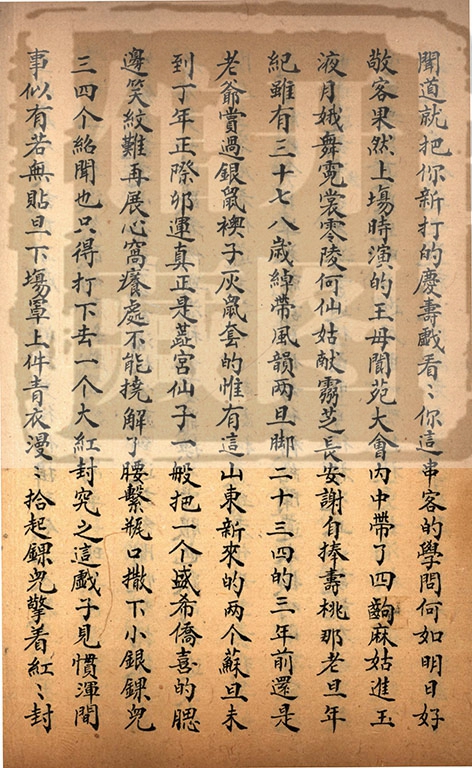 聞道就把你新打的慶壽戲看〻你這串客的學問何如明日好
敬客果然上塲時演的王母閬苑大會內中帶了四齣麻姑進玉
液月娥舞霓裳零陵何仙姑献霛芝長安謝自捧壽桃那老旦年
紀雖有三十七八歲綽帶風韻两旦脚二十三四的三年前還是
老爺賞過銀鼠襖子灰鼠套的惟有這山東新來的两个蘇旦未
到丁年正際卯運真正是蕋宮仙子一般把一个盛希僑喜的腮
邊笑紋難再展心窩癢處不能撓解了腰繫瓶口撒下小銀錁兒
三四个紹聞也只得打下去一个大紅封究之這戲子見慣渾閒
事似有若無貼旦下塲罩上件青衣漫〻拾起錁兒擎着紅〻封